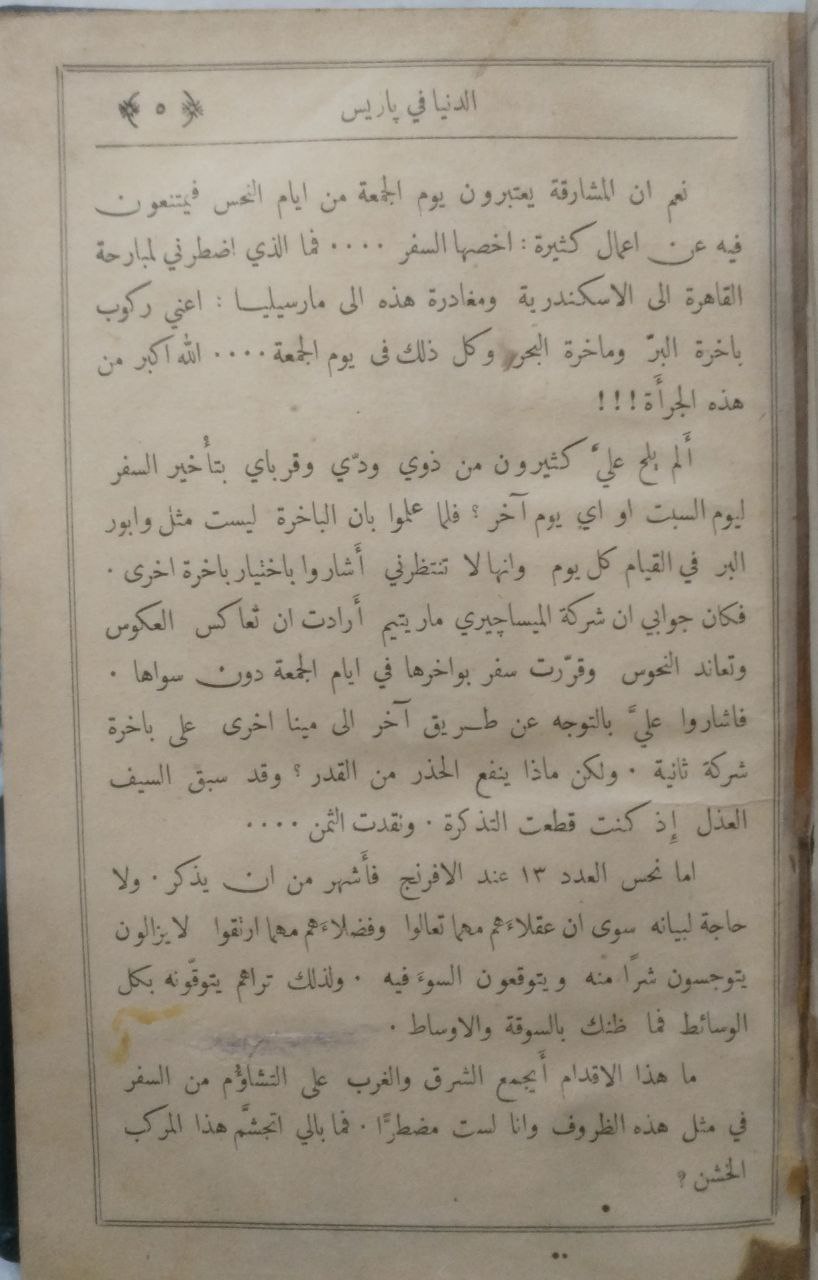 الدنيا في پاريس ﴿ ٥ ﴾
نعم ان المشارقة يعتبرون يوم الجمعة من ايام النحس فيمتنعون
فيه عن اعمال كثيرة : اخصها السفر ···· فما الذي اضطرني لمبارحة
القاهرة الى الاسكندرية ومغادرة هذه الى مارسيليا : اعني ركوب
باخرة البرّ وماخرة البحر وكل ذلك فى يوم الجمعة ···· الله اكبر من
هذه الجرأَة !!!
أَلم يلح عليَّ كثيرون من ذوي ودّي وقرباي بتأْخير السفر
ليوم السبت او اي يوم آخر ؟ فلما علموا بان الباخرة ليست مثل وابور
البر في القيام كل يوم وانها لا تنتظرني أَشاروا باختيار باخرة اخرى ·
فكان جوابي ان شركة الميساچيري ماريتيم أَرادت ان تعاكس العكوس
وتعاند النحوس وقرّرت سفر بواخرها في ايام الجمعة دون سواها ·
فاشاروا عليَّ بالتوجه عن طريق آخر الى مينا اخرى على باخرة
شركة ثانية · ولكن ماذا ينفع الحذر من القدر ؟ وقد سبق السيف
العذل إِذ كنت قطعت التذكرة · ونقدت الثمن ····
اما نحس العدد ١٣ عند الافرنج فأَشهر من ان يذكر · ولا
حاجة لبيانه سوى ان عقلاءَهم مهما تعالوا وفضلاءَهم مهما ارتقوا لا يزالون
يتوجسون شرًا منه ويتوقعون السوءَ فيه · ولذلك تراهم يتوقّونه بكل
الوسائط فما ظنك بالسوقة والاوساط ·
ما هذا الاقدام أَيجمع الشرق والغرب على التشاؤُم من السفر
في مثل هذه الظروف وانا لست مضطرًّا · فما بالي اتجشَّم هذا المركب
الخشن ؟